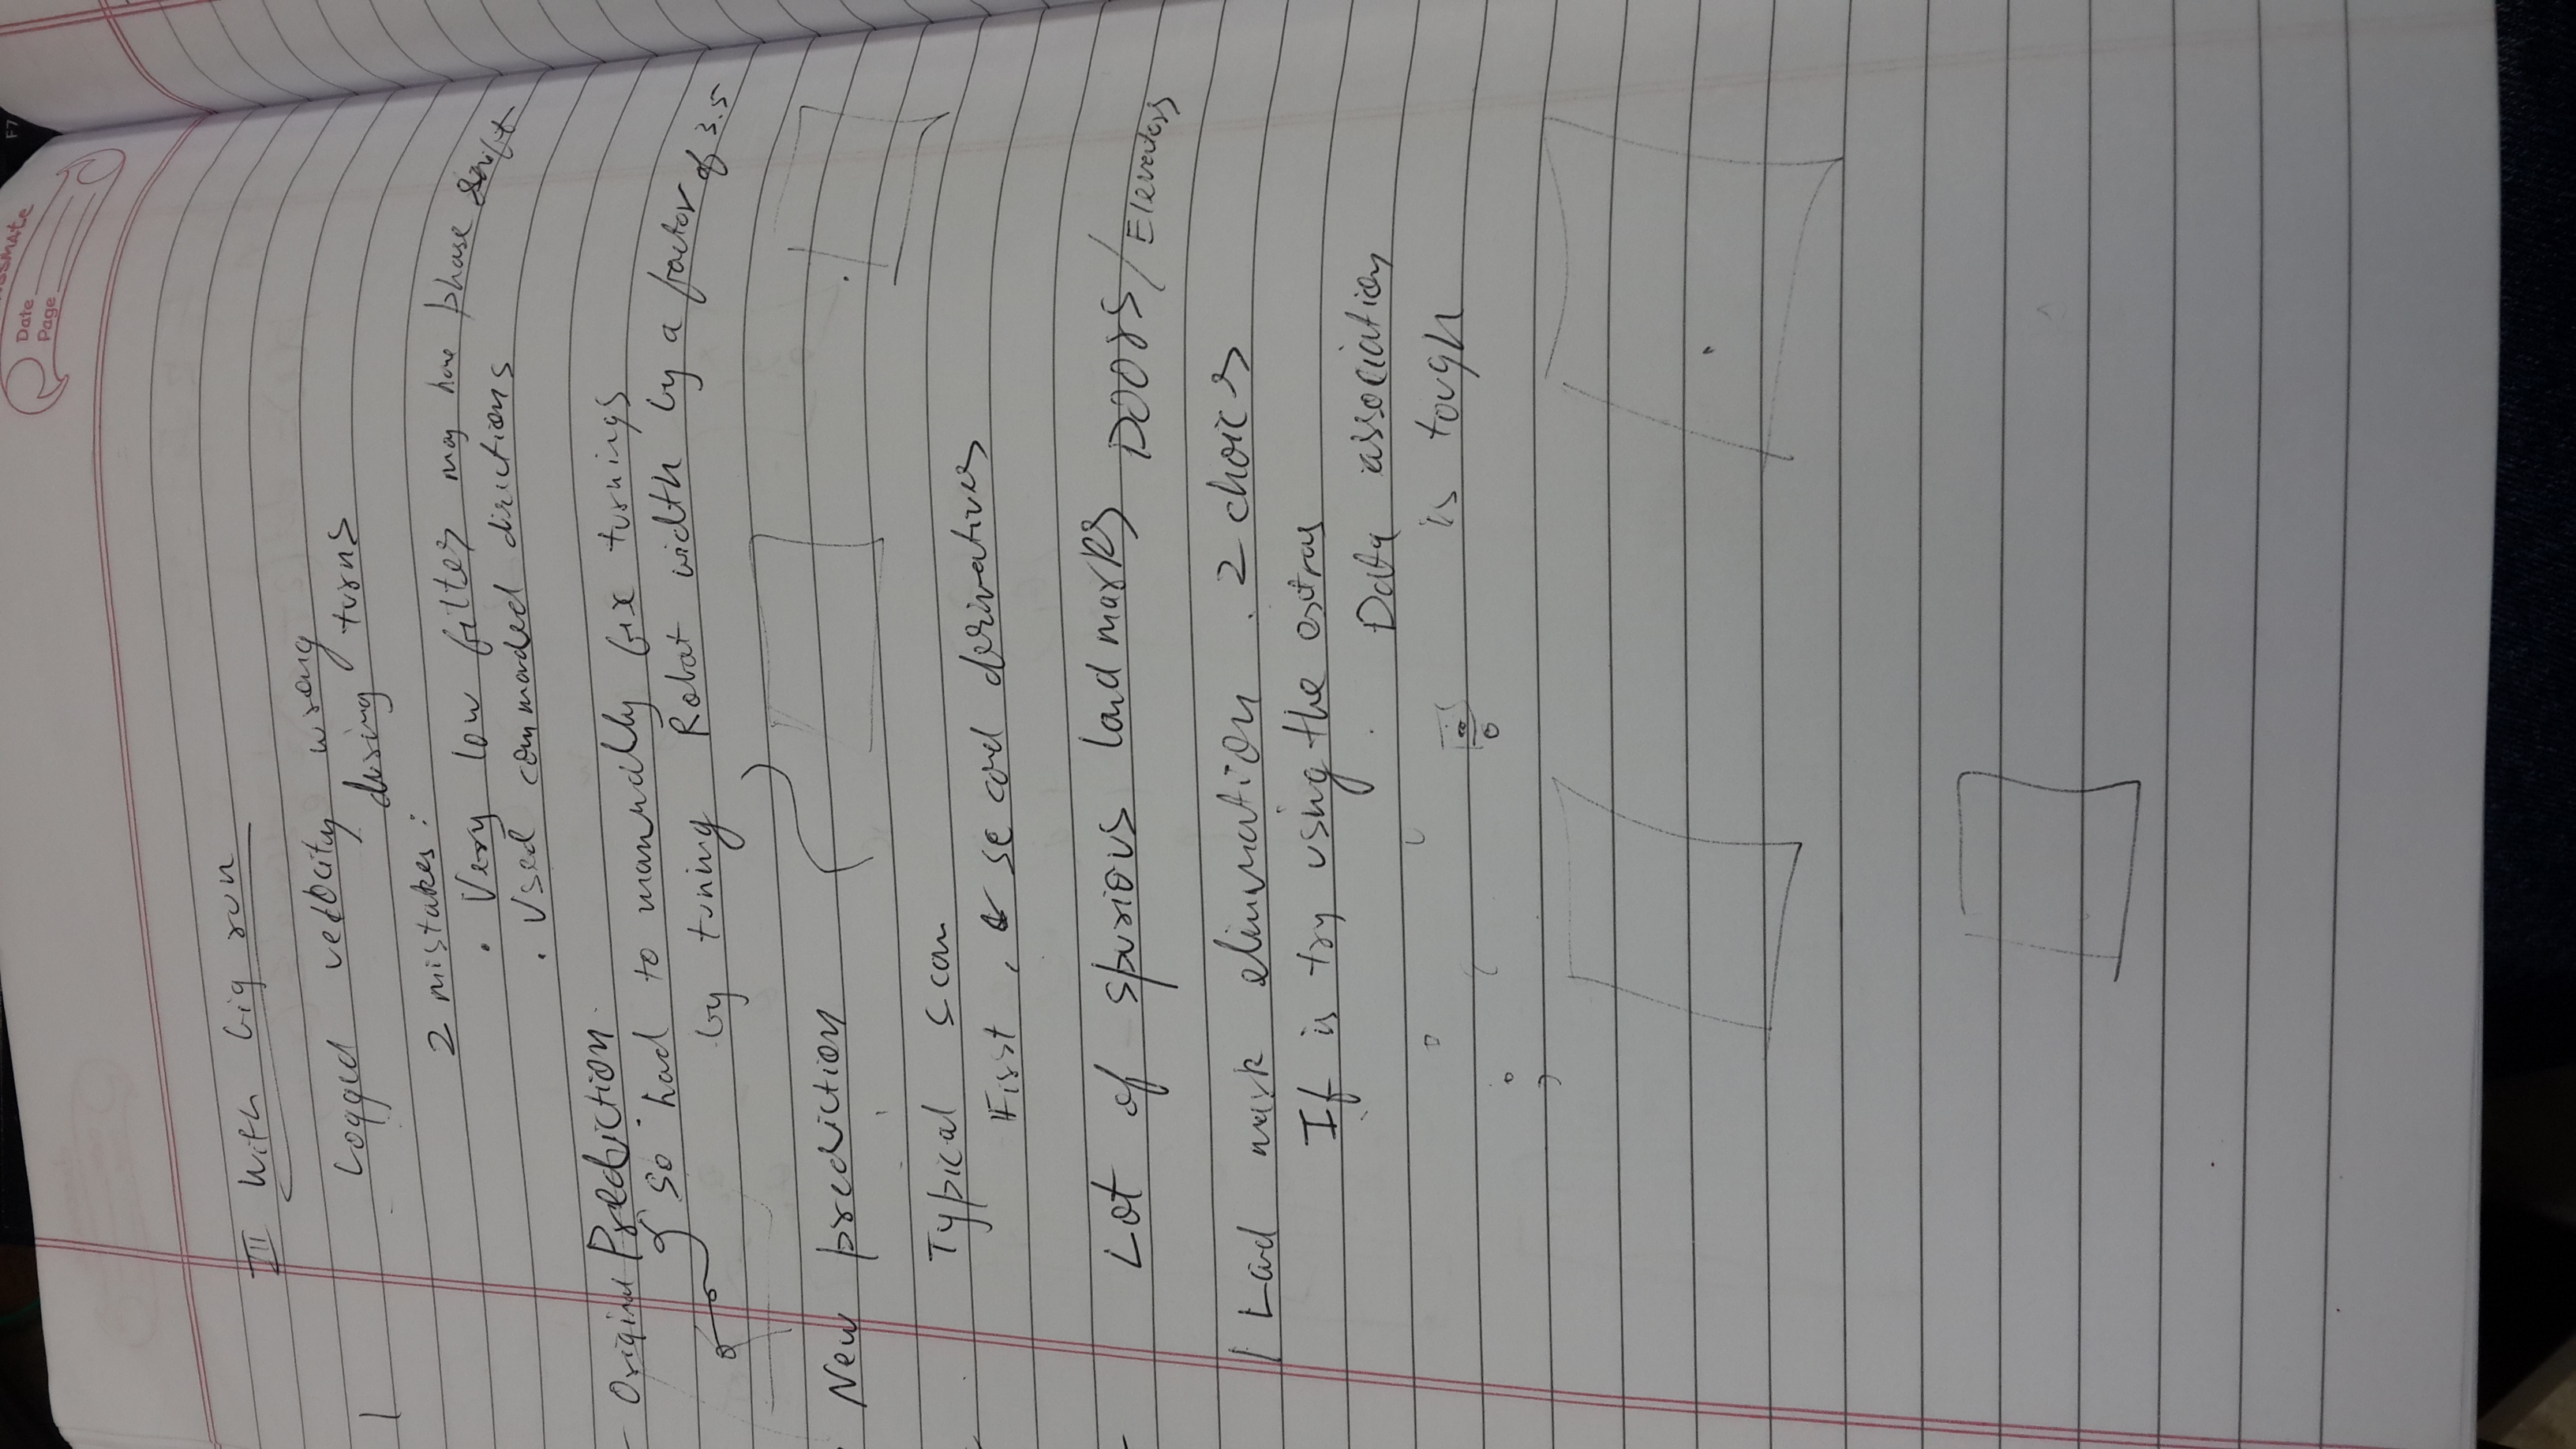 classmate
Date
Page
F7
III With big run
Logged velocity wrong
during turns
2 mistakes:
. Very low filter may have phase shift
. Used commanded directions
- Original Prediction.
So had to manually fix turnings
by tuning Robot width by a factor of 3.5
New prediction
Typical scan
First, & second derivatives
- Lot of spurious land marks Doors/Elevators
Land mark elimination. 2 choices
If is try using the extras
Data association
is tough